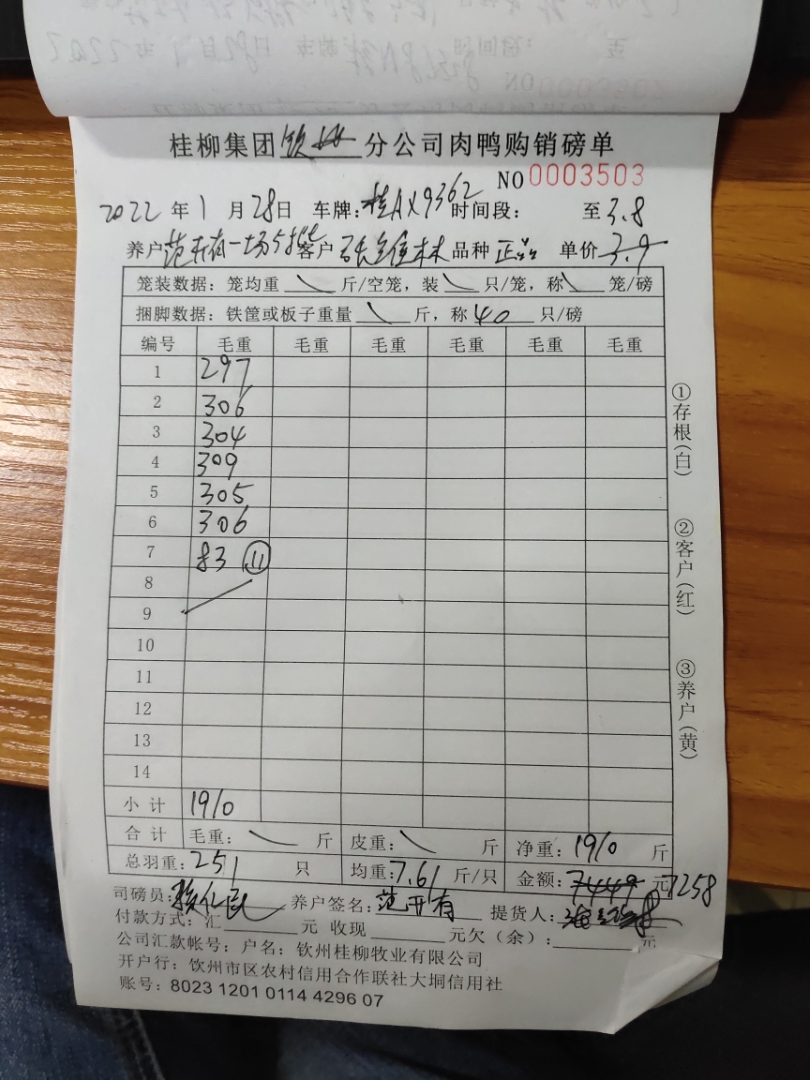 桂柳集团钦州分公司肉鸭购销磅单
NO 0003503
2022年1月28日 车牌:桂AX9362 时间段: 至3.8
养户范开有一场5批 客户 品种正品 单价3.9
笼装数据:笼均重 斤/空笼,装 只/笼,称 笼/磅
捆脚数据:铁筐或板子重量 斤,称40只/磅
编号 毛重 毛重 毛重 毛重 毛重 毛重
1 297
2 306
3 304
4 309
5 305
6 306
7 83 ⑪
8
9
10
11
12
13
14
小计 1910
合计 毛重: 斤 皮重: 斤 净重:1910斤
总羽重:251 只 均重:7.61斤/只 金额:7449元 7258
司磅员: 养户签名:范开有 提货人:
付款方式:汇 元 收现 元欠(余): 元
公司汇款帐号:户名:钦州桂柳牧业有限公司
开户行:钦州市区农村信用合作联社大垌信用社
账号:8023 1201 0114 4296 07
①存根(白)
②客户(红)
③养户(黄)